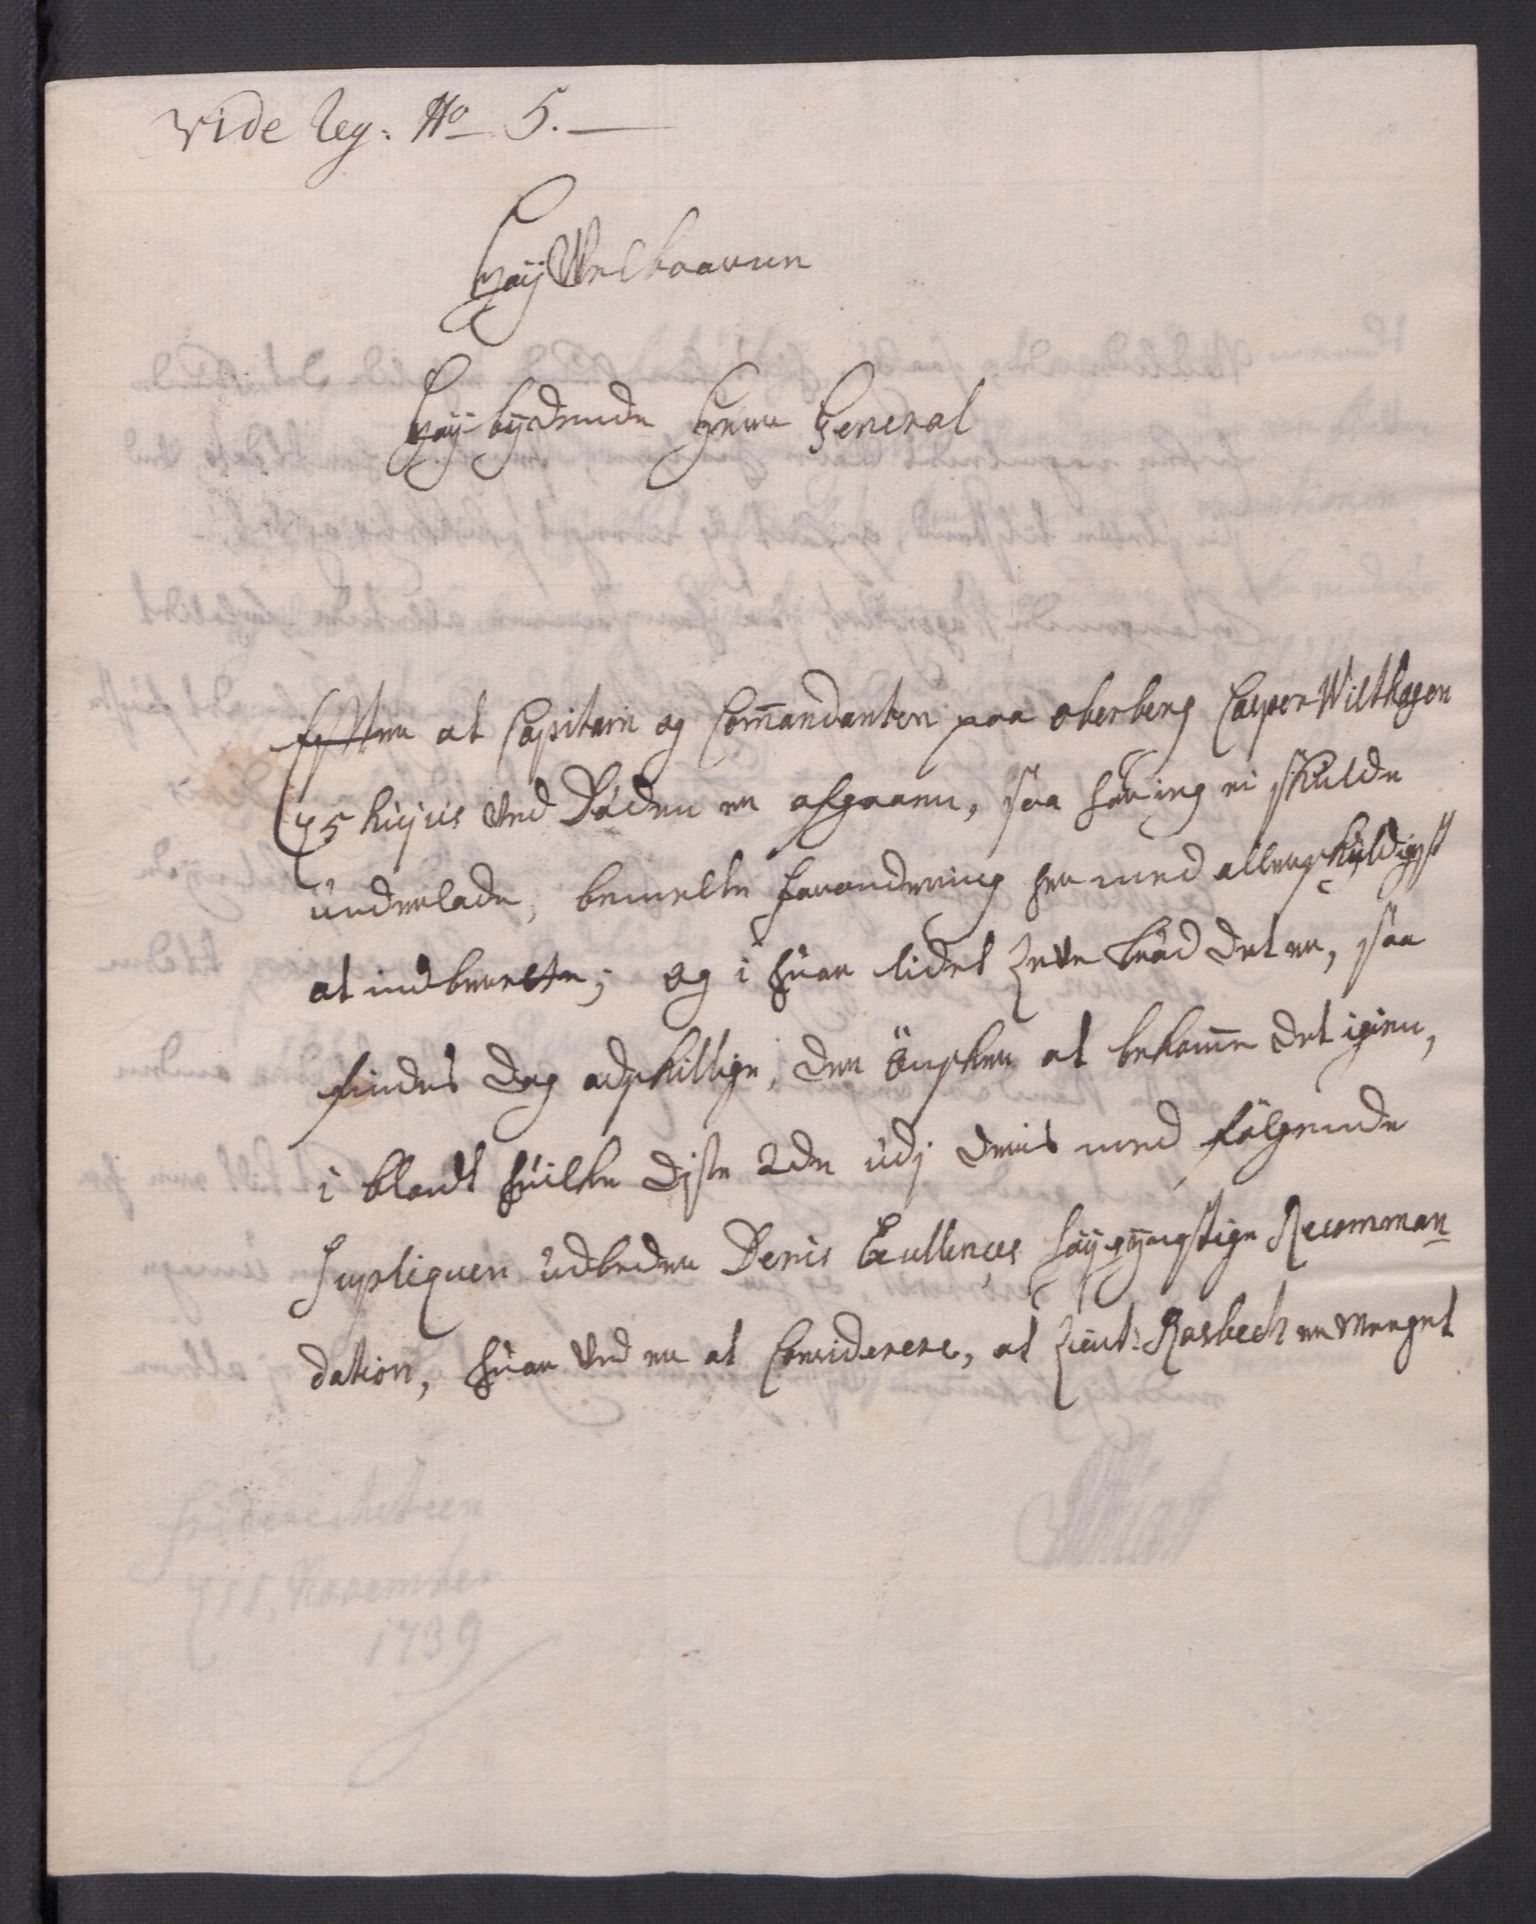 Vide Reg: No 5.—
HöyWelbaarne
Höy-bydende Herre General
Efter at Capitain og Commandanten paa Oberberg Casper Wilthagen
d 5 hujus ved Döden er afgaaen, saa har ieg ei skulde
underlade, bemelte forandering her med allerskyldigst
at indberette; og i hvor lidet Levebröd det er, saa
findes dog adskillige, der önsker at bekomme det igien,
i blandt hvilke disse 2de udj deris med fölgende
Supliquer udbeder Deris Excellences höygynstige Recomman-
dation, hvor ved er at Considerere, at Lieut: Rasbech er meeget